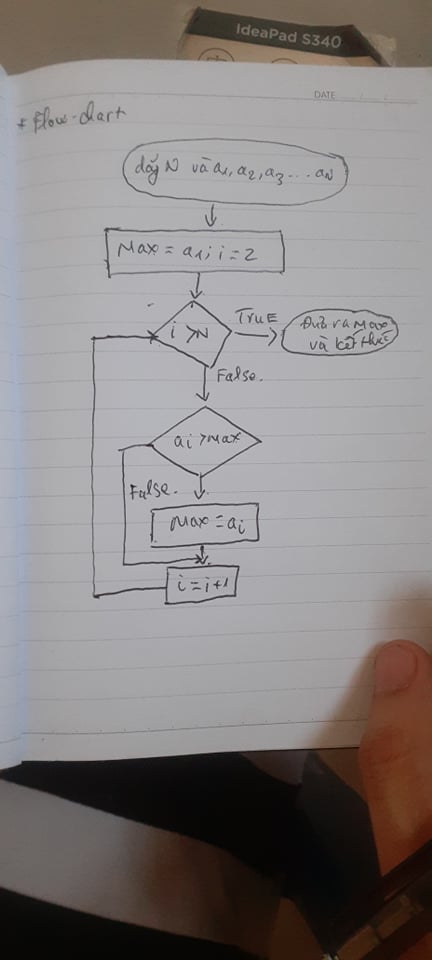 IdeaPad S340
DATE
* Flow-chart
dãy N và a1, a2, a3 ... aN
Max = a1; i = 2
i > N
TruE
Đưa ra Max
và kết thúc
False.
ai > Max
False.
Max = ai
i = i + 1